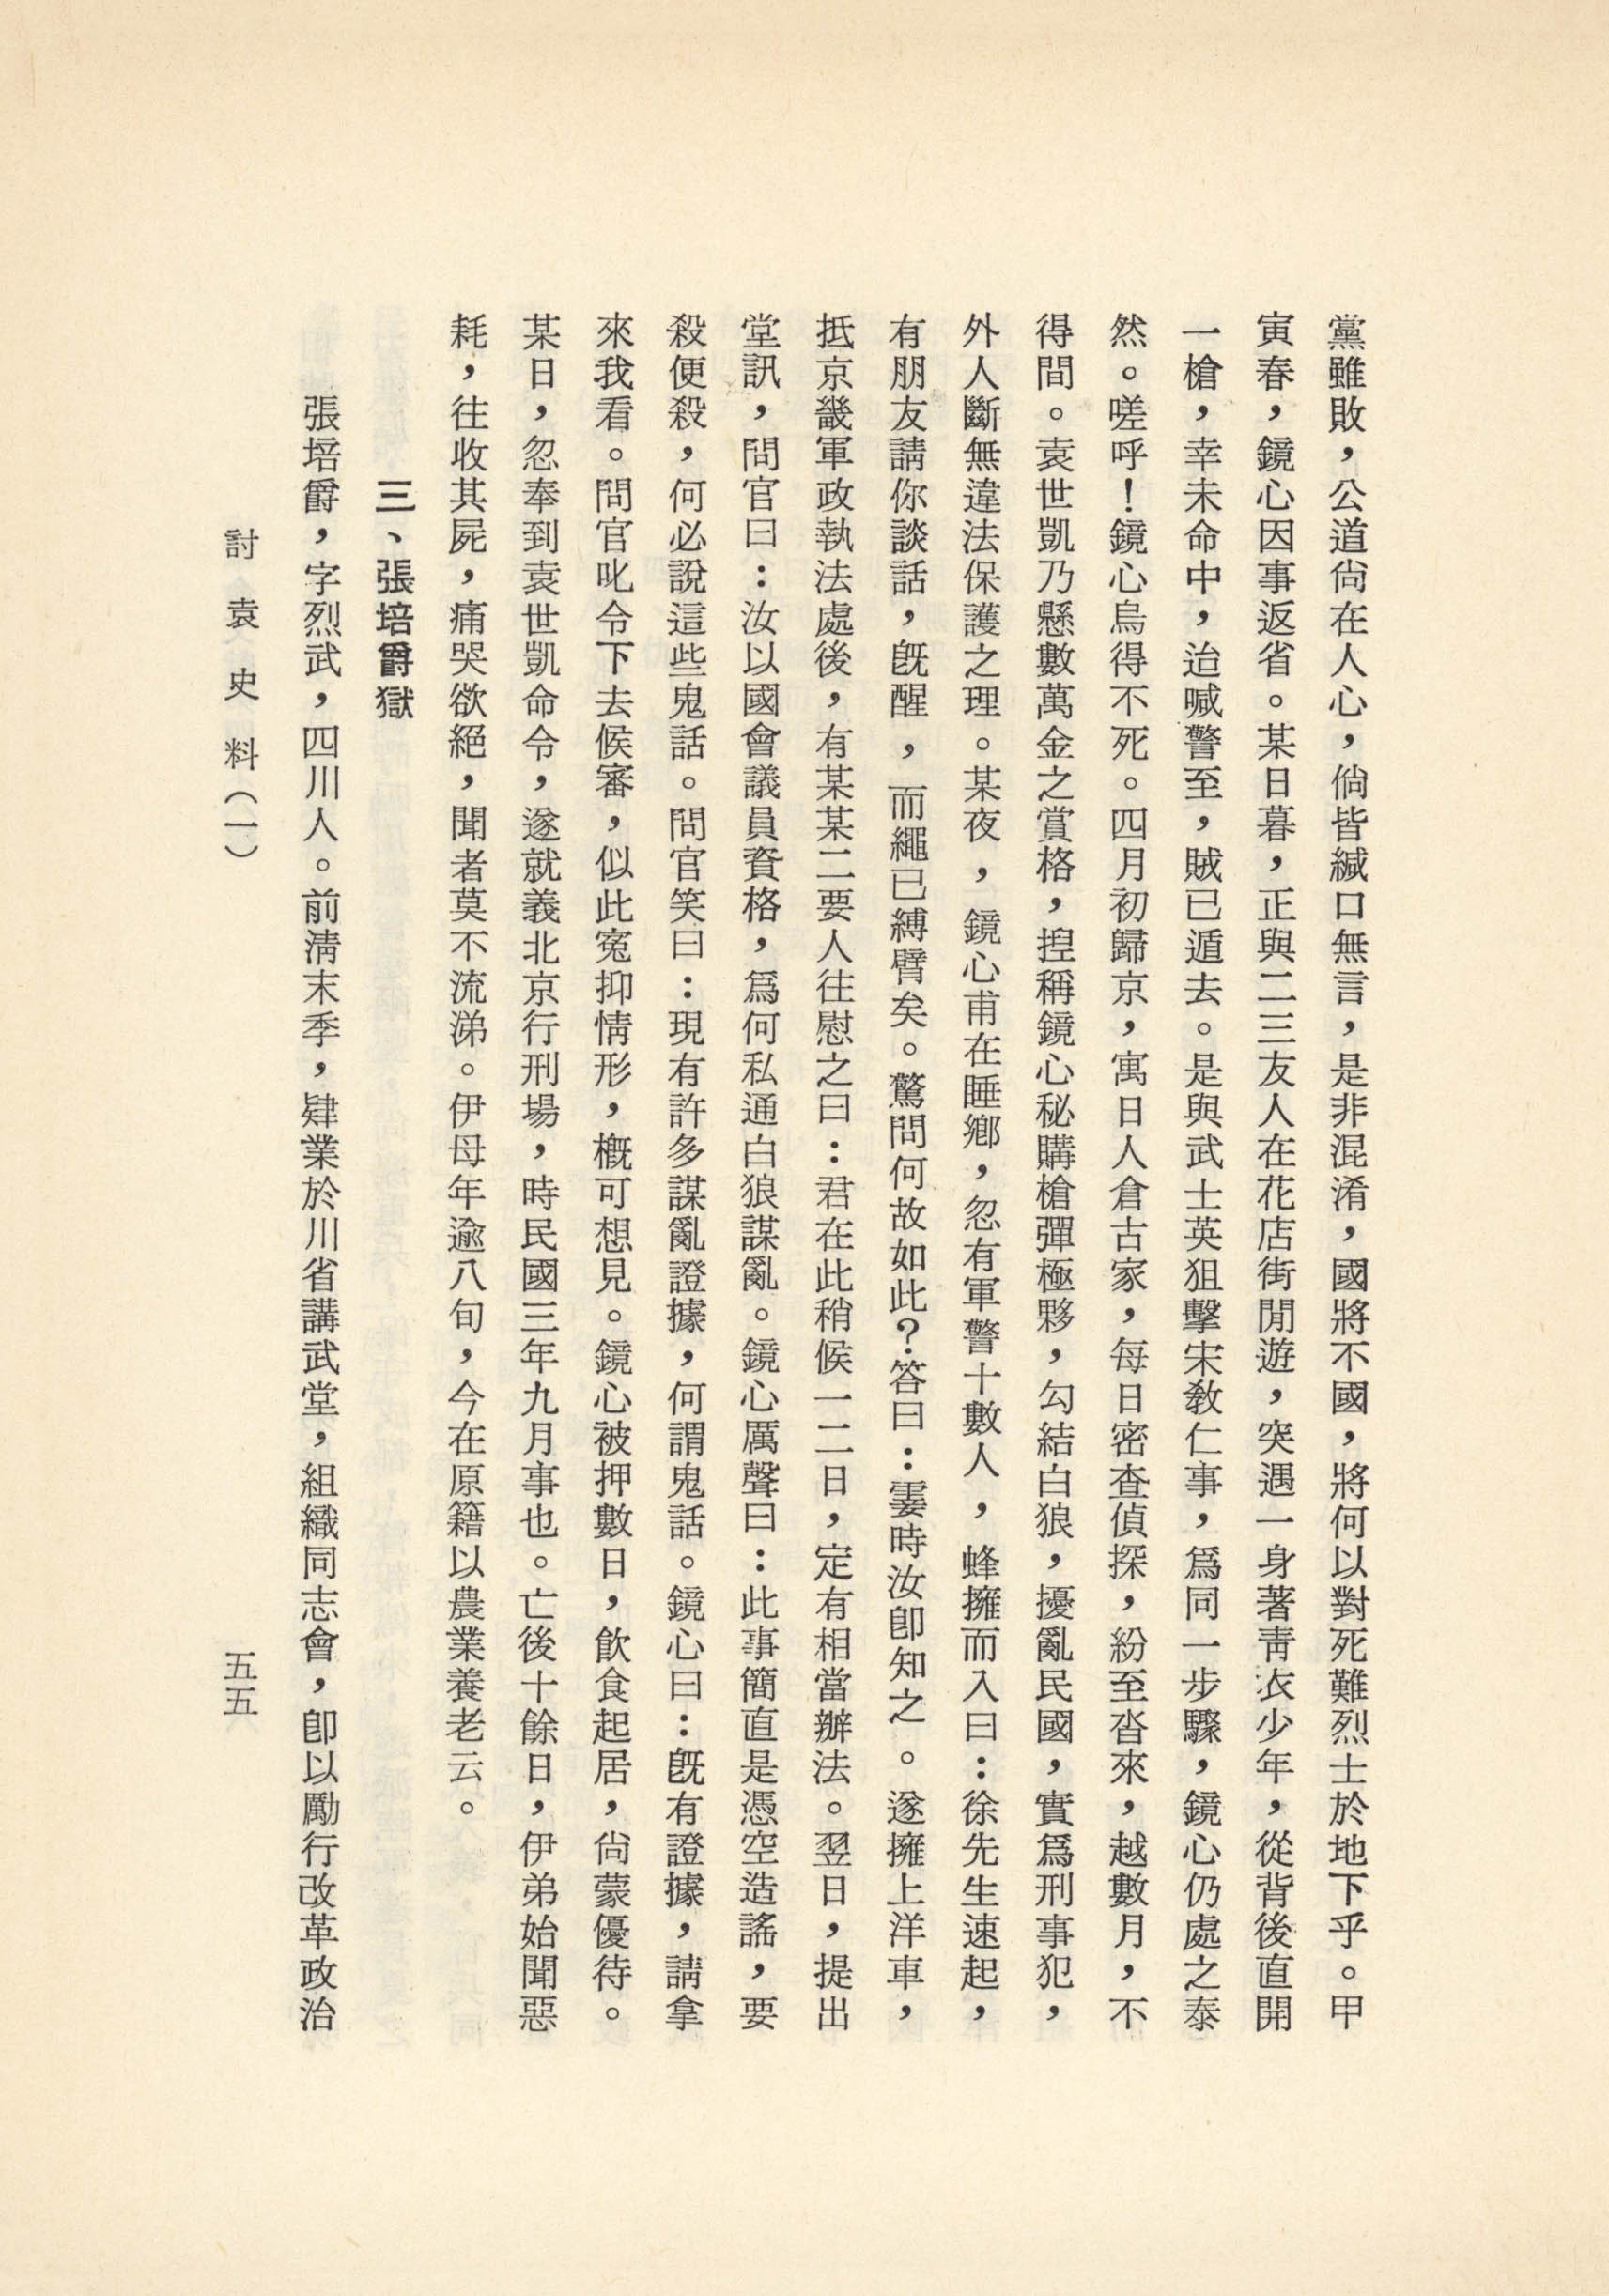 黨雖敗，公道尙在人心，倘皆緘口無言，是非混淆，國將不國，將何以對死難烈士於地下乎。甲
寅春，鏡心因事返省。某日暮，正與二三友人在花店街閒遊，突遇一身著靑衣少年，從背後直開
一槍，幸未命中，迨喊警至，賊已遁去。是與武士英狙擊宋敎仁事，爲同一步驟，鏡心仍處之泰
然。嗟呼！鏡心烏得不死。四月初歸京，寓日人倉古家，每日密查偵探，紛至沓來，越數月，不
得間。袁世凱乃懸數萬金之賞格，揑稱鏡心秘購槍彈極夥，勾結白狼，擾亂民國，實爲刑事犯，
外人斷無違法保護之理。某夜，鏡心甫在睡鄉，忽有軍警十數人，蜂擁而入曰：徐先生速起，
有朋友請你談話，旣醒，而繩已縛臂矣。驚問何故如此？答曰：霎時汝卽知之。遂擁上洋車，
抵京畿軍政執法處後，有某某二要人往慰之曰：君在此稍候一二日，定有相當辦法。翌日，提出
堂訊，問官曰：汝以國會議員資格，爲何私通白狼謀亂。鏡心厲聲曰：此事簡直是憑空造謠，要
殺便殺，何必說這些鬼話。問官笑曰：現有許多謀亂證據，何謂鬼話。鏡心曰：旣有證據，請拿
來我看。問官叱令下去候審，似此寃抑情形，槪可想見。鏡心被押數日，飮食起居，尙蒙優待。
某日，忽奉到袁世凱命令，遂就義北京行刑場，時民國三年九月事也。亡後十餘日，伊弟始聞惡
耗，往收其屍，痛哭欲絕，聞者莫不流涕。伊母年逾八旬，今在原籍以農業養老云。
三、張培爵獄
張培爵，字烈武，四川人。前淸末季，肄業於川省講武堂，組織同志會，卽以勵行改革政治
討袁史料（一）
五五